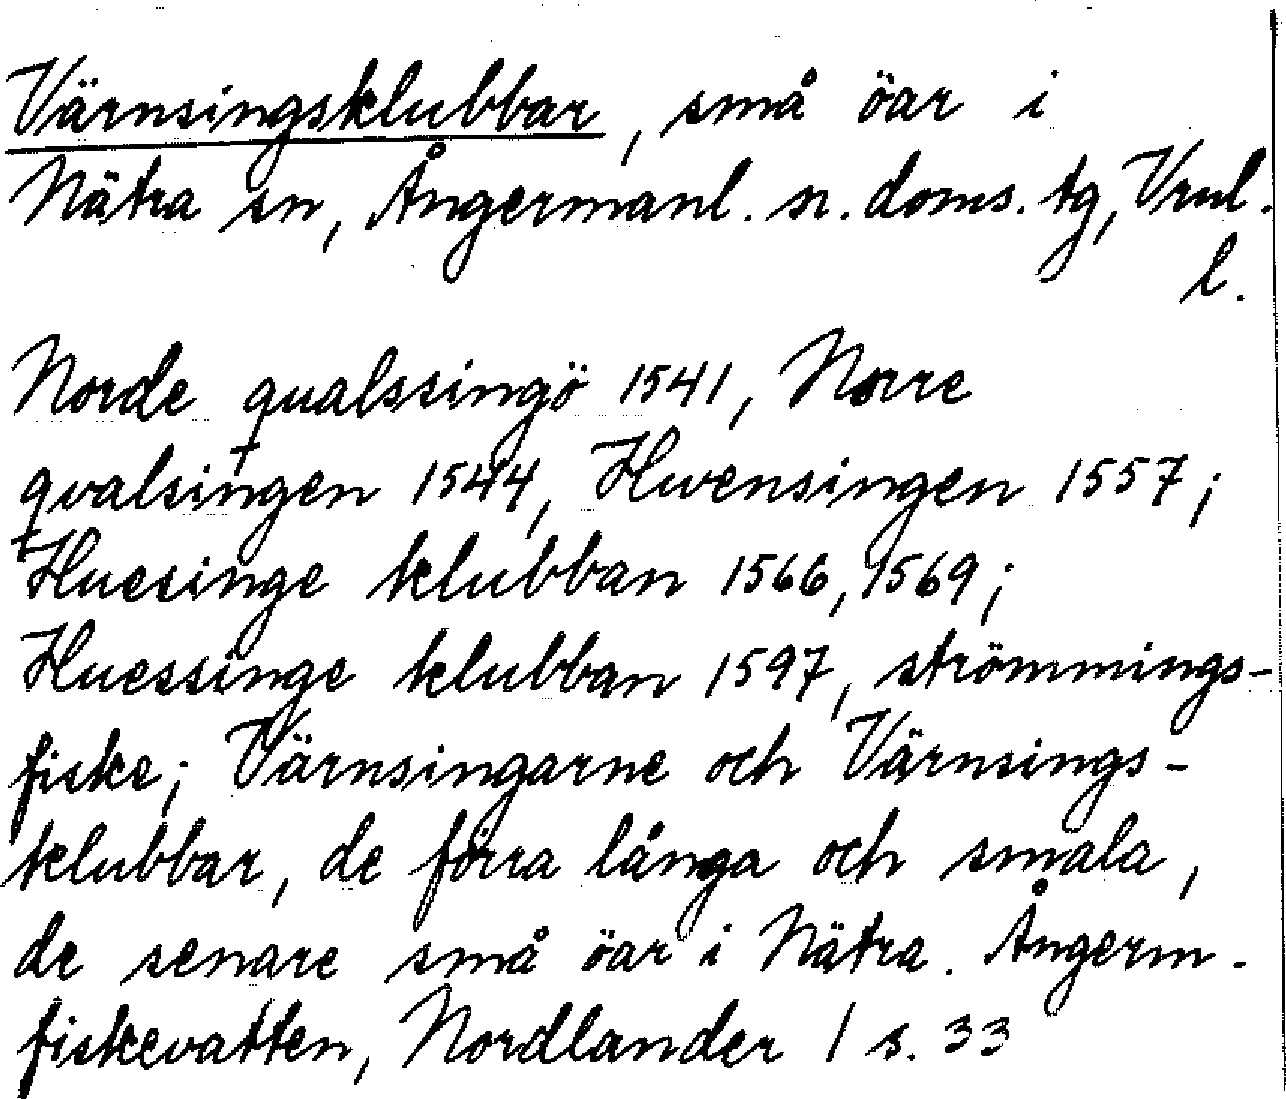 Värnsingsklubbar, små öar i
Nätra sn, Ångermanl. n. doms. tg, Vrnl.
l.
Norde qualssingö 1541, Norre
qvalsingen 1544, Hwensingen 1557;
Huesinge klubban 1566, 1569;
Huessinge klubban 1597, strömmings-
fiske; Värnsingarne och Värnsings-
klubbar, de förra långa och smala,
de senare små öar i Nätra. Ångerm.
fiskevatten, Nordlander 1 s. 33